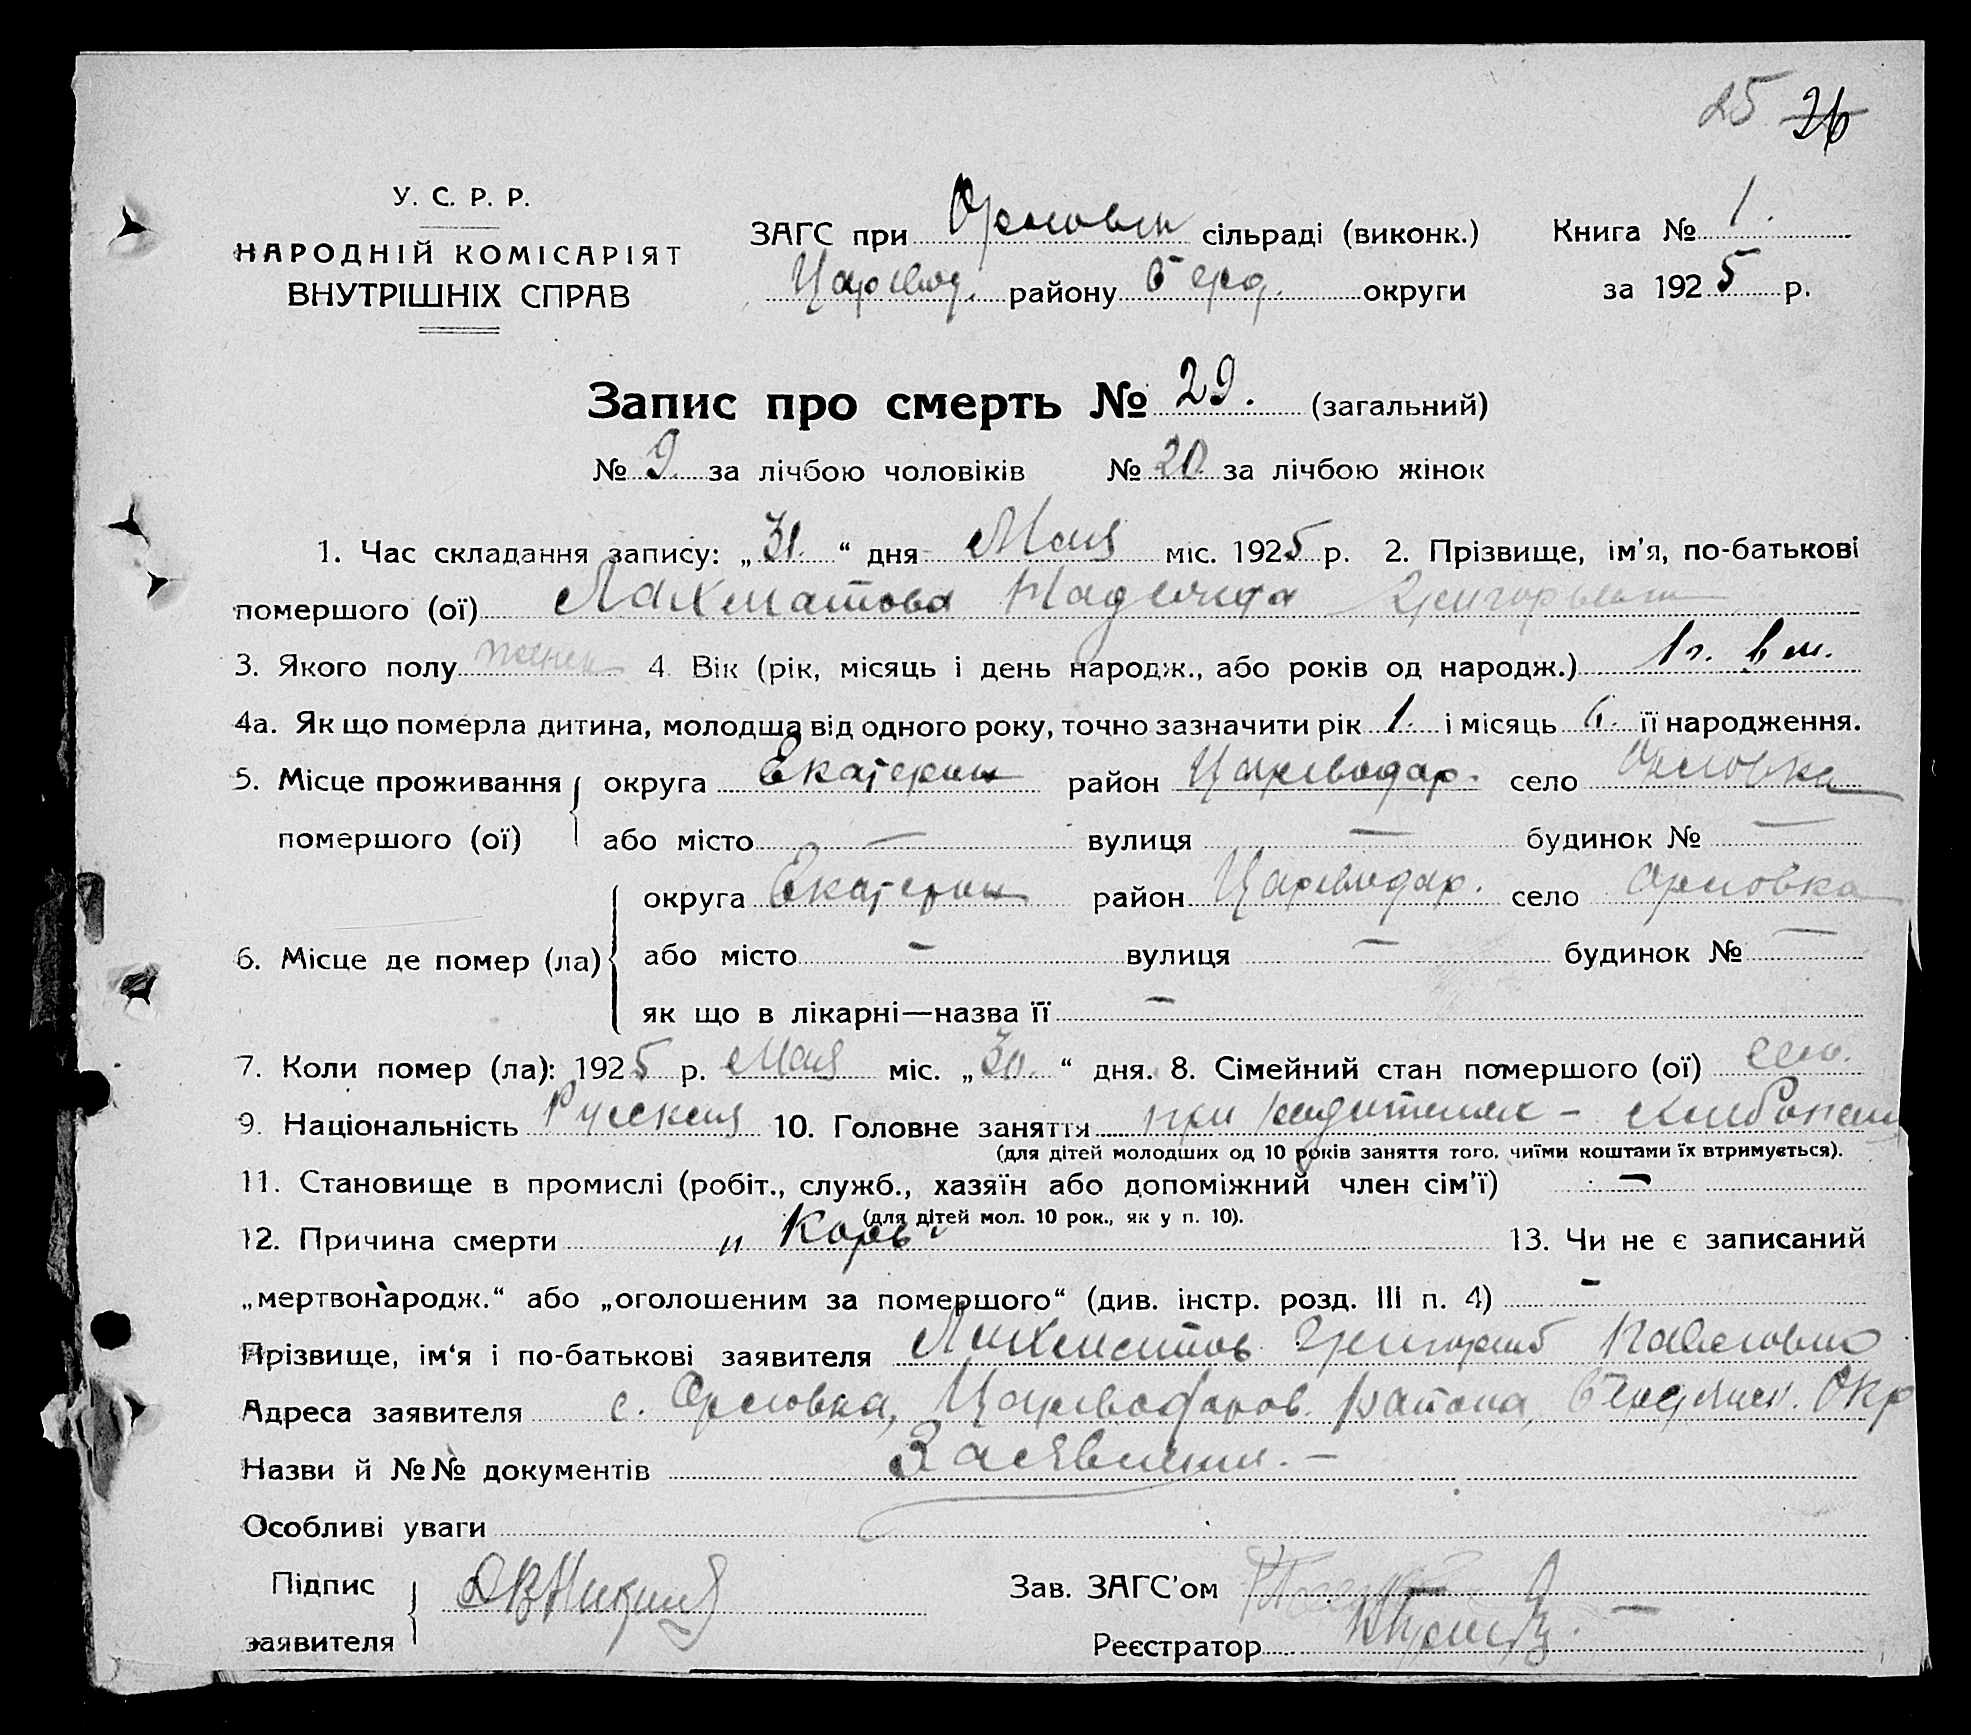 25 26
У. С. Р. Р.
НАРОДНІЙ КОМІСАРІЯТ
ВНУТРІШНІХ СПРАВ
ЗАГС при Орловск сільраді (виконк.) Книга № 1.
Царевод. району Берд. округи за 1925 р.
Запис про смерть № 29. (загальний)
№ 9. за лічбою чоловіків № 20 за лічбою жінок
1. Час складання запису: „31.“ дня Мая міс. 1925 р. 2. Прізвище, ім'я, по-батькові
помершого (ої) Лахматова Надежда Григорьевна
3. Якого полу женск 4 Вік (рік, місяць і день народж., або років од народж.) 1 г. 6 м.
4а. Як що померла дитина, молодща від одного року, точно зазначити рік 1. і місяць 6. її народження.
5. Місце проживання округа Екатерин район Цареводар. село Орловка
помершого (ої) або місто — вулиця — будинок № —
округа Екатерин район Цареводар. село Орловка
6. Місце де помер (ла) або місто — вулиця — будинок № —
як що в лікарні—назва її —
7. Коли помер (ла): 1925 р. Мая міс. „30.“ дня. 8. Сімейний стан помершого (ої)
9. Національність Русская 10. Головне заняття при родителях – хлебопаш
(для дітей молодших од 10 років заняття того, чиїми коштами їх втримується).
11. Становище в промислі (робіт., служб., хазяїн або допоміжний член сім'ї) —
(для дітей мол. 10 рок., як у п. 10).
12. Причина смерти „Корь“ 13. Чи не є записаний
„мертвонародж.“ або „оголошеним за помершого“ (див. інстр. розд. III п. 4) —
Прізвище, ім'я і по-батькові заявителя Лахматов Григорий Павлович
Адреса заявителя с. Орловка, Цареводаров. района, Бердянск. Окр
Назви й №№ документів Заявление. —
Особливі уваги
Підпис Зав. ЗАГС'ом
заявителя Реєстратор